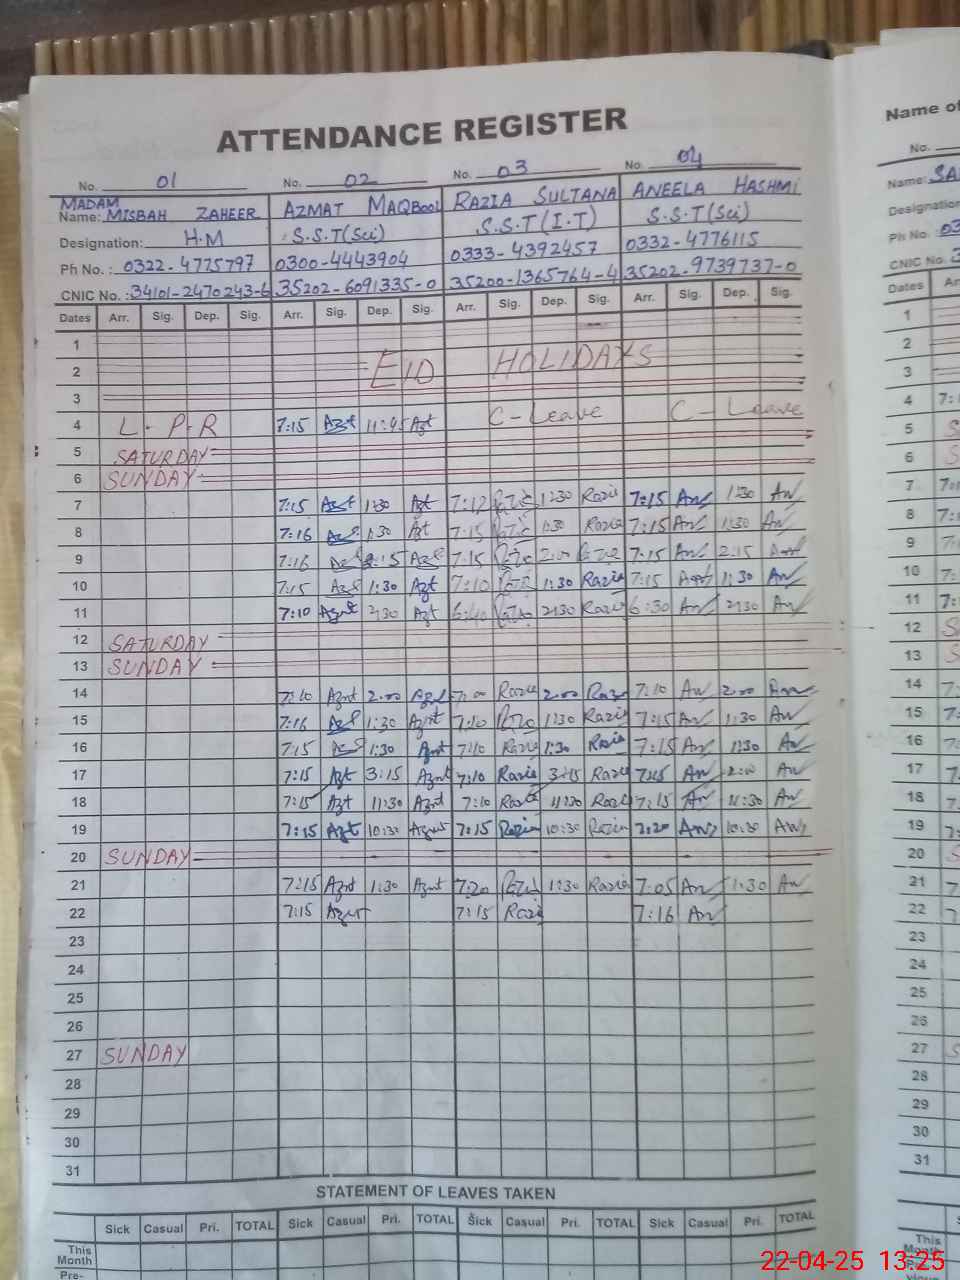 ATTENDANCE REGISTER
No. 01 No. 02 No. 03 No. 04
MADAM
Name: MISBAH ZAHEER AZMAT MAQBOOL RAZIA SULTANA ANEELA HASHMI
Designation: H.M S.S.T(Sci) S.S.T(I.T) S.S.T(Sci)
Ph No.: 0322-4775797 0300-4443904 0333-4392457 0332-4776115
CNIC No.: 34101-2470243-6 35202-6091335-0 35200-1365764-4 35202-9739737-0
Dates Arr. Sig. Dep. Sig. Arr. Sig. Dep. Sig. Arr. Sig. Dep. Sig. Arr. Sig. Dep. Sig.
1
2 EID HOLIDAYS
3
4 L.P.R 7:15 Azt 11:45 Azt C-Leave C-Leave
5 SATURDAY
6 SUNDAY
7 7:15 Azt 1:30 Azt 7:12 Razia 1:30 Razia 7:15 An 1:30 An
8 7:16 Azt 1:30 Azt 7:15 Razia 1:30 Razia 7:15 An 1:30 An
9 7:16 Azt 2:15 Azt 7:15 Razia 2:00 Razia 7:15 An 2:15 An
10 7:15 Azt 1:30 Azt 7:10 Razia 1:30 Razia 7:15 An 1:30 An
11 7:10 Azmt 2:30 Azt 6:40 Razia 2:30 Razia 6:30 An 2:30 An
12 SATURDAY
13 SUNDAY
14 7:10 Azmt 2:00 Azt 7:00 Razia 2:00 Razia 7:10 An 2:00 An
15 7:16 Azt 1:30 Azmt 7:10 Razia 1:30 Razia 7:15 An 1:30 An
16 7:15 Azt 1:30 Azmt 7:10 Razia 1:30 Razia 7:15 An 1:30 An
17 7:15 Azt 3:15 Azmt 7:10 Razia 3:15 Razia 7:15 An 2:10 An
18 7:15 Azt 11:30 Azmt 7:10 Razia 11:30 Razia 7:15 An 11:30 An
19 7:15 Azt 10:30 Azmt 7:15 Razia 10:30 Razia 7:20 An 10:30 An
20 SUNDAY
21 7:15 Azmt 1:30 Azmt 7:20 Razia 1:30 Razia 7:05 An 1:30 An
22 7:15 Azmt 7:15 Razia 7:16 An
23
24
25
26
27 SUNDAY
28
29
30
31
STATEMENT OF LEAVES TAKEN
Sick Casual Pri. TOTAL Sick Casual Pri. TOTAL Sick Casual Pri. TOTAL Sick Casual Pri. TOTAL
This
Month
Pre-
Name of
No.
Name: SA
Designation
Ph No.: 03
CNIC No.: 3
Dates Ar
1
2
3
4 7:
5 S
6 S
7 7:
8 7:
9 7:
10 7:
11 7:
12 S
13 S
14 7:
15 7:
16 7:
17 7:
18 7:
19 7:
20 S
21 7:
22 7
23
24
25
26
27 S
28
29
30
31
This
Month
22-04-25 13:25